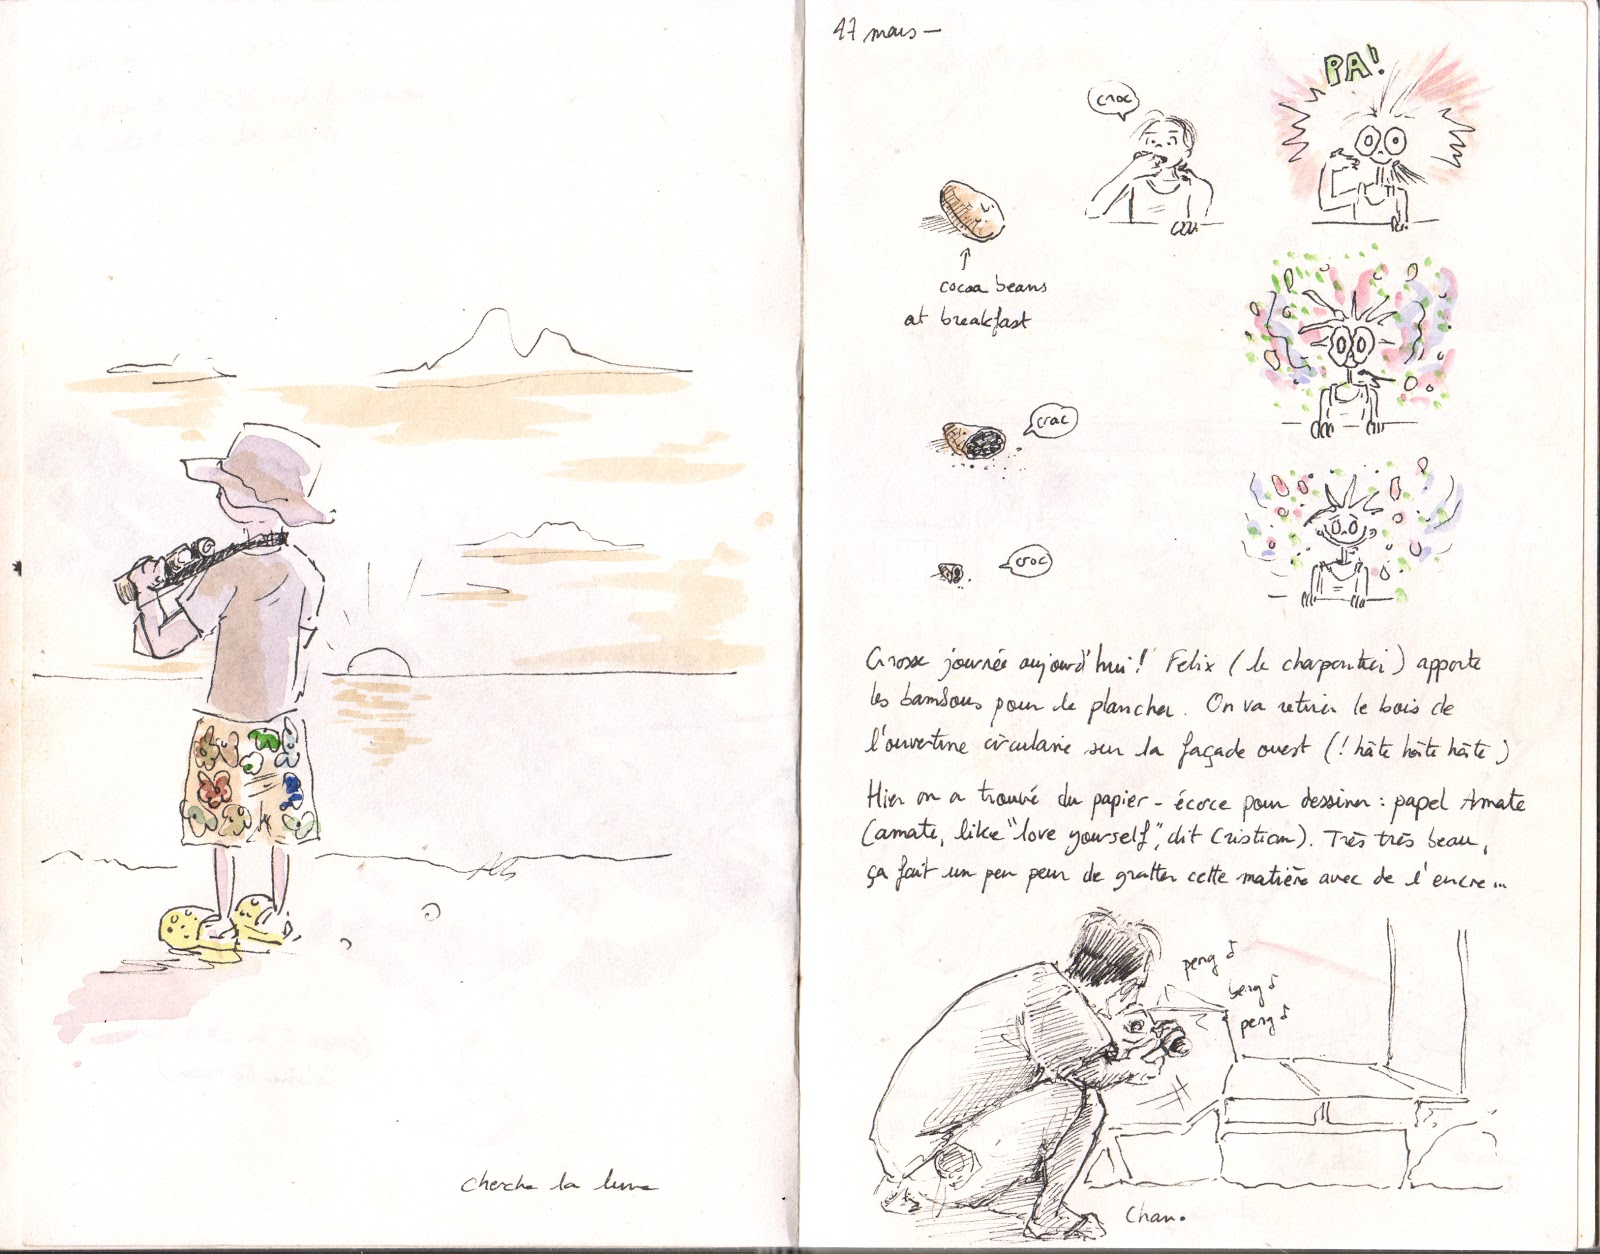 cherche la lune
17 mars –
PA!
croc
cocoa beans
at breakfast
crac
croc
Grosse journée aujourd'hui! Felix (le charpentier) apporte
les bambous pour le plancher. On va retirer le bois de
l'ouverture circulaire sur la façade ouest (! hâte hâte hâte)
Hier on a trouvé du papier-écorce pour dessiner : papel Amate
(amate, like "love yourself", dit Cristian). Très très beau,
ça fait un peu peur de gratter cette matière avec de l'encre...
peng
beng
peng
Chan.